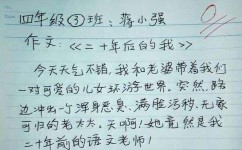 四年级③班:蒋小强
作文:《二十年后的我》
今天天气不错,我和老婆带着我们
一对可爱的儿女环游世界。突然,路
边冲出一个浑身恶臭、满脸污秽、无家
可归的老太太。天啊!她竟然是我
二十年前的语文老师!
0